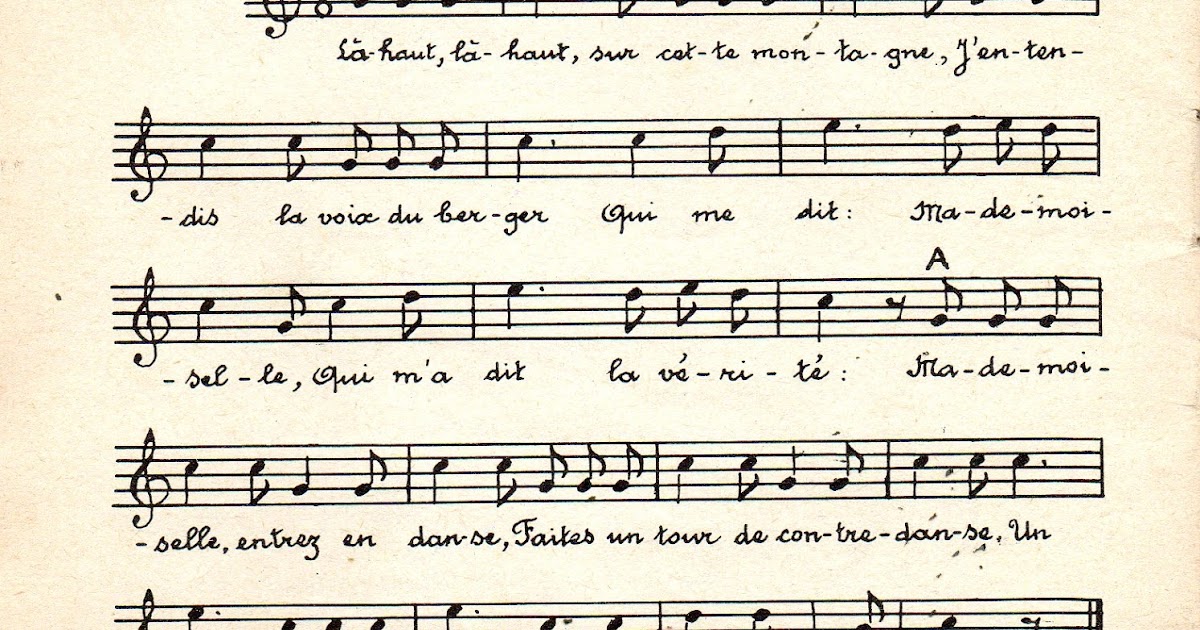 Là-haut, là-haut, sur cet-te mon-ta-gne, J'en-ten-
-dis la voix du ber-ger Qui me dit: Ma-de-moi-
A
-sel-le, Qui m'a dit la vé-ri-té: Ma-de-moi-
-selle, entrez en dan-se, Faites un tour de con-tre-dan-se, Un